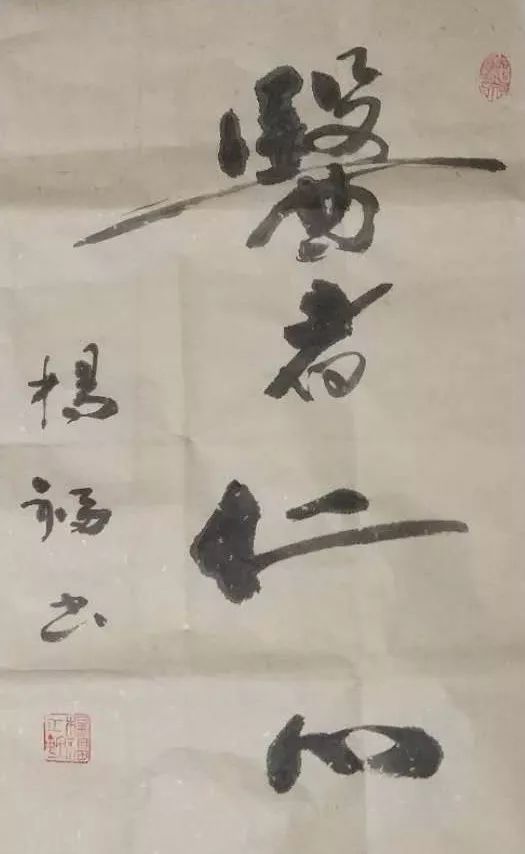 醫者仁心
楊福書